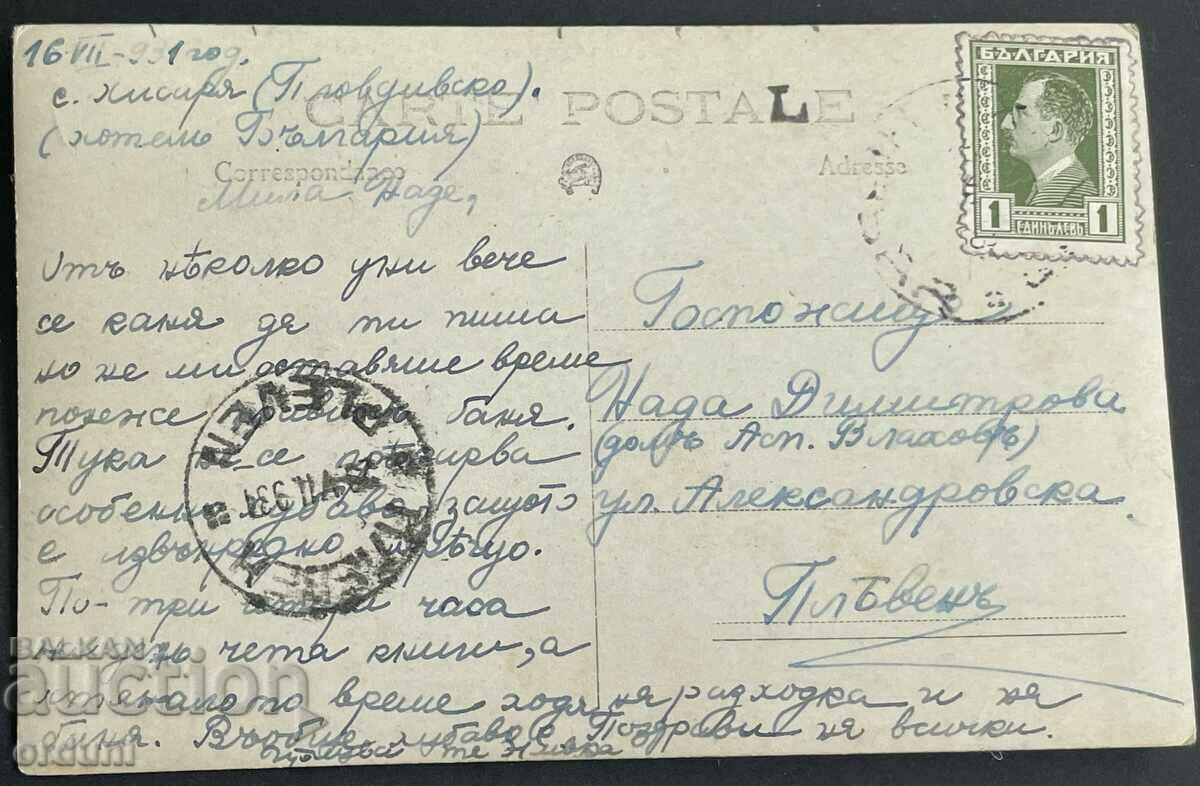 16 VII - 931 год.
с. Хисаря (Пловдивско).
(хотелъ България)
CARTE POSTALE
L
Correspondance
Adresse
Мила Наде,
Отъ нѣколко дни вече
се каня да ти пиша
но не ми оставяше време
понеже баня.
Тука не се
особено защото
е извънредно горѣщо.
По-три часа
на день чета книги, а
останалото време ходя на разходка и на
баня. Въобще хубаво е Поздрави на всички.
те Живка
БЪЛГАРИЯ
1 ЕДИНЪ ЛЕВЪ 1
Госпожица
Нада Димитрова
(домъ Ас. Влаховъ)
ул. Александровска
Плѣвенъ
PLEVEN
VII 931
ПЛѢВЕНЪ
BALKAN
auction
orduni